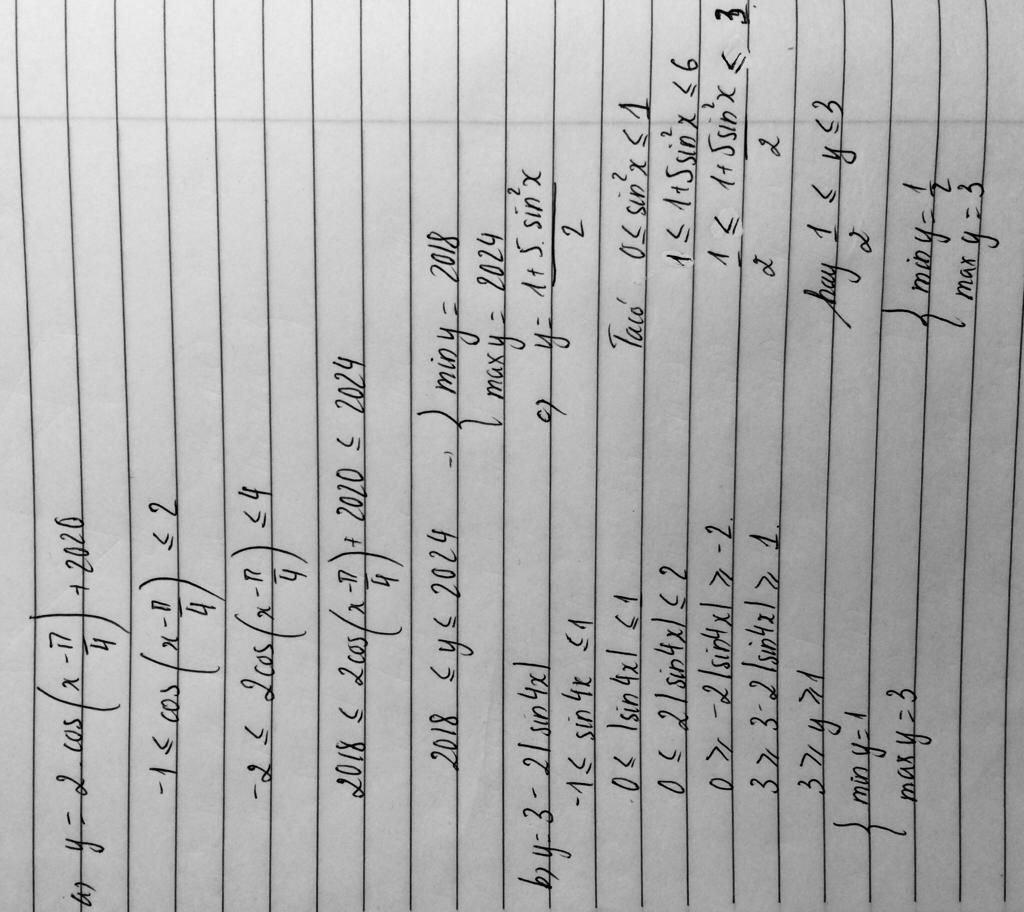 a) y = 2.cos(x - π/4) + 2020
-1 ≤ cos(x - π/4) ≤ 2
-2 ≤ 2cos(x - π/4) ≤ 4
2018 ≤ 2cos(x - π/4) + 2020 ≤ 2024
2018 ≤ y ≤ 2024 → { min y = 2018
max y = 2024
b) y = 3 - 2|sin4x|
-1 ≤ sin4x ≤ 1
0 ≤ |sin4x| ≤ 1
0 ≤ 2|sin4x| ≤ 2
0 ≥ -2|sin4x| ≥ -2
3 ≥ 3 - 2|sin4x| ≥ 1
3 ≥ y ≥ 1
{ min y = 1
max y = 3
c) y = (1 + 5.sin²x)/2
Ta có 0 ≤ sin²x ≤ 1
1 ≤ 1 + 5sin²x ≤ 6
1/2 ≤ (1 + 5sin²x)/2 ≤ 3
hay 1/2 ≤ y ≤ 3
{ min y = 1/2
max y = 3